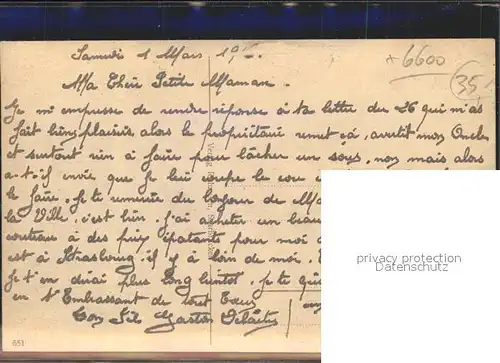 Samedi 1 Mars 19
* 6600
35
Ma Chère Petite Maman.
Je m'empresse de rendre réponse à ta lettre du 26 qui m'as
fait bien plaisir, alors le propriétaire remet ça, avertit mon Oncle
et surtout rien à faire pour lâcher un sous, non mais alors
a-t-il envie que je lui coupe le cou
le faire. Je te remercie du bonjour de
la Ville, c'est bien. J'ai acheter un beau
couteau à des prix épatants pour moi
est à Strasbourg il y à loin de moi.
Je t'en dirai plus long bientôt, je te
en t'Embrassant de tout Cœur
Ton Fils Gaston
651
privacy protection
Datenschutz